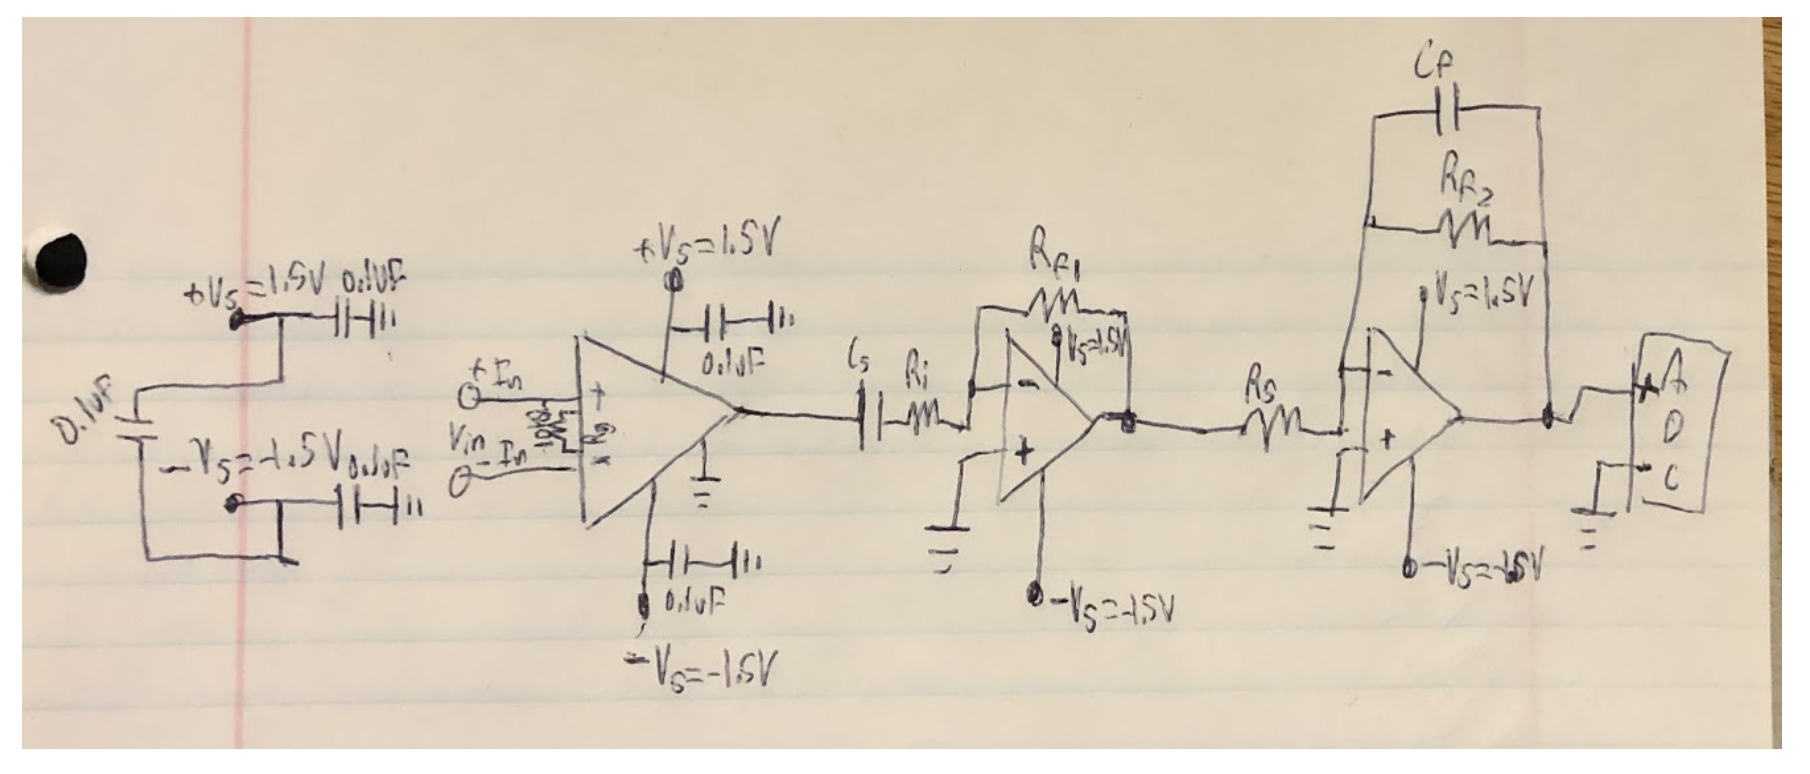 +Vs=1.5V 0.1uF
0.1uF
-Vs=-1.5V 0.1uF
+In
Vin
-In
+
Rg
+Vs=1.5V
0.1uF
0.1uF
-Vs=-1.5V
Cs
Ri
RF1
Vs=1.5V
-
+
-Vs=-1.5V
Rs
CF
RF2
Vs=1.5V
-
+
-Vs=-1.5V
+ A
D
- C